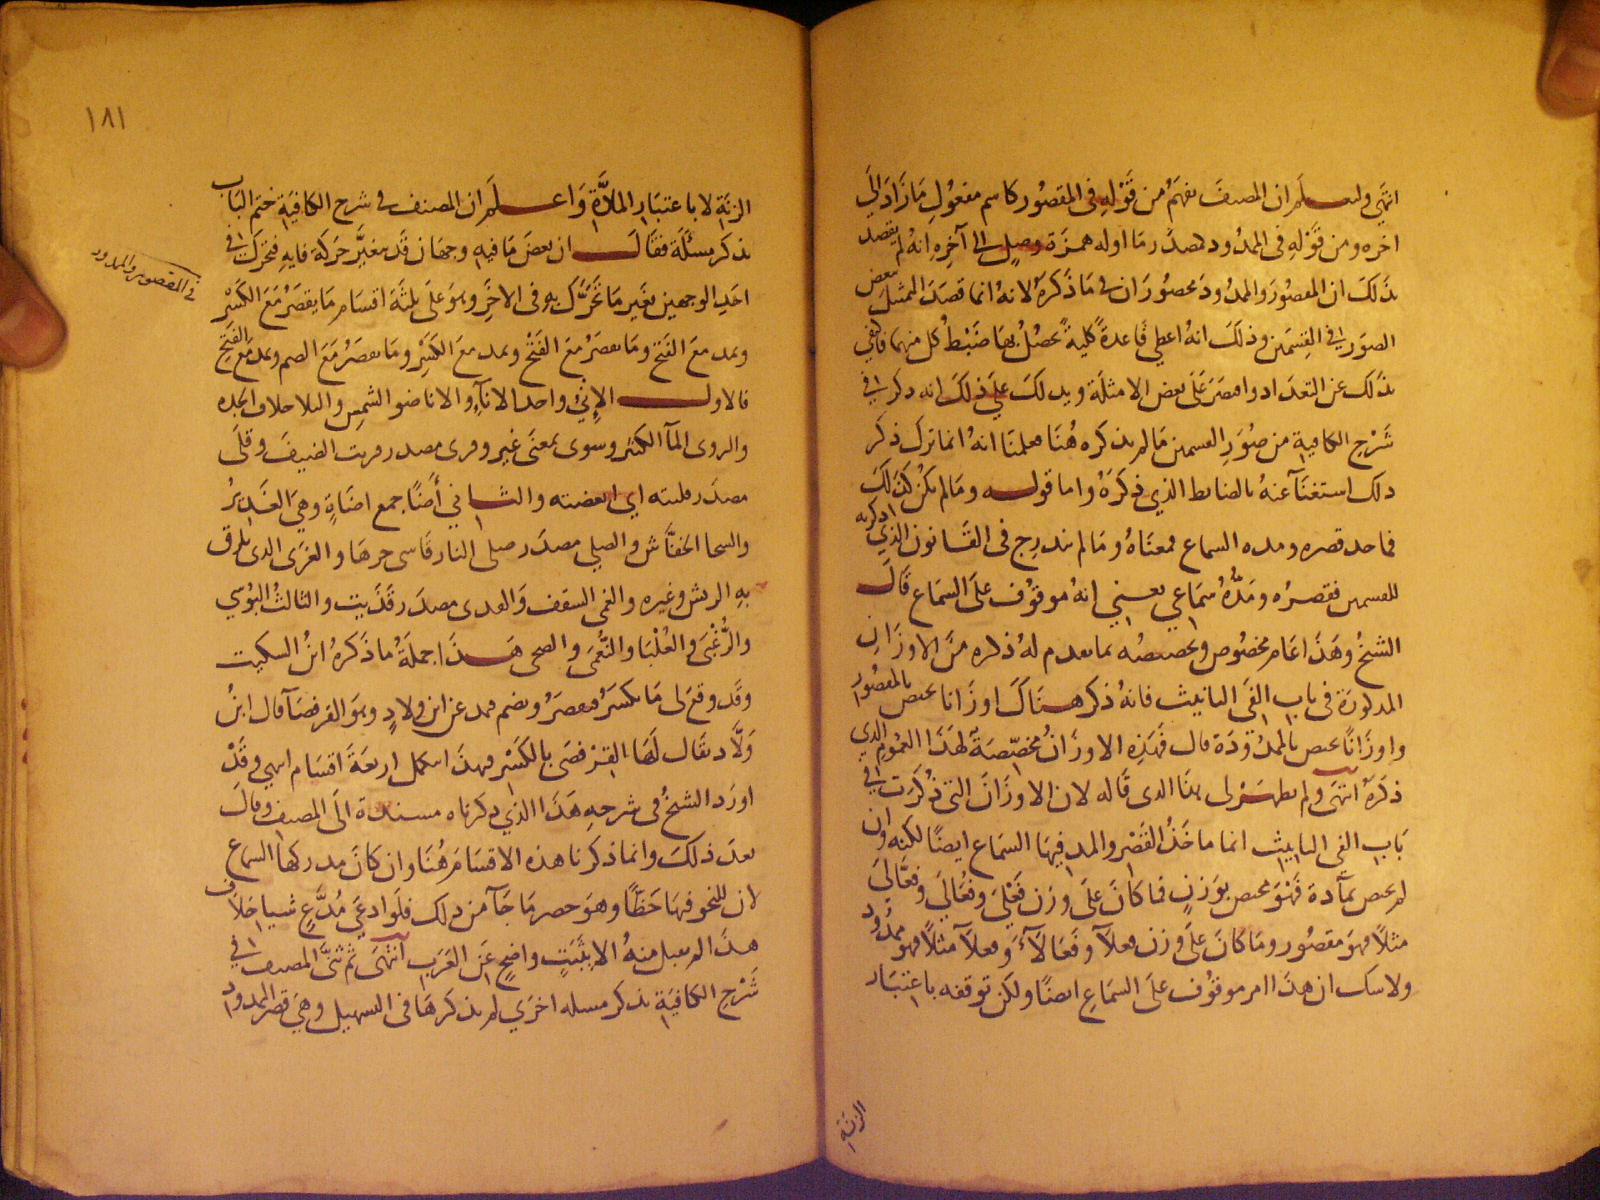 انتهى وليعلم ان المصنف يفهم من قوله في المقصور كاسم مفعول ما زاد الى
اخره ومن قوله في الممدود كمصدر ما اوله همزة وصل الى آخره انه لم يقصد
بذلك ان المقصور والممدود محصوران في ما ذكره لانه انما قصد المثيل بعض
الصور في القسمين وذلك انه اعطي قاعدة كلية تحصل بها ضبط كل منهما فاكتفي
بذلك عن التعداد واقتصر على بعض الامثلة ويدلك على ذلك انه ذكر في
شرح الكافية من صور القسمين ما لم يذكره هنا فعلمنا انه انما ترك ذكر
ذلك استغنآ عنه بالضابط الذي ذكره واما قوله وما لم يكن كذلك
فماخذ قصره ومده السماع فمعناه وما لم يندرج في القانون الذي ذكرته
للقسمين فقصره ومده سماعي يعني انه موقوف على السماع قال
الشيخ وهذا عام مخصوص وتخصيصه بما تقدم له ذكره من الاوزان
المذكورة في باب الفي التانيث فانه ذكر هناك اوزانا تختص بالمقصور
واوزانا تختص بالممدودة قال فهذه الاوزان مخصصة لهذا العموم الذي
ذكره انتهى ولم يظهر لي هذا الذي قاله لان الاوزان التي ذكرت في
باب الفي التانيث انما ماخذ القصر والمد فيها السماع ايضا لكنه وان
لم يختص بمادة فهو مختص بوزن فما كان على وزن فعلى وفعالى وفعالى
مثلا فهو مقصور وما كان على وزن فعلآ وفعالآء وفعلآ مثلا فهو ممدود
ولا شك ان هذا امر موقوف على السماع ايضا ولكن توقفه باعتبار
الزنة
١٨١
الزنة لا باعتبار المادة واعلم ان المصنف في شرح الكافية ختم الباب
بذكر مسئلة فقال ان بعض ما فيه وجهان قد يتغير حركة فايه فتحرك في
احد الوجهين بغير ما تحرك به في الاخر وهو على ثلثة اقسام ما يقصر مع الكسر
ويمد مع الفتح وما يقصر مع الفتح ويمد مع الكسر وما يقصر مع الضم ويمد مع الفتح
فالاول الإنى واحد الانآء والايا ضو الشمس والبلا خلاف الجده
والروى المآ الكثير وسوى بمعنى غير وقرى مصدر قريت الضيف وقلى
مصدر قليته اي ابغضته والثاني أضًا جمع اضاة وهي الغدير
والسحا الخفاش والصلى مصدر صلى النار قاسى حرها والغرى الذي يلزق
به الريش وغيره والغمى السقف والفدى مصدر فديت والثالث البؤسي
والرغبى والعليا والنعمى والضحى هذا جملة ما ذكره ابن السكيت
وقد وقع لى ما يكسر فيقصر ويضم فيمد عن ابن ولاد وهو القرفصآ قال ابن
ولاد يقال لها القرفصى بالكسر فهذا استكمل اربعة اقسام انتهى وقد
اورد الشيخ في شرحه هذا الذي ذكرناه مسندة الى المصنف وقال
بعد ذلك وانما ذكرنا هذه الاقسام هنا وان كان مدركها السماع
لان للنحو فيها حظا وهو حصر ما جآ من ذلك فلو ادعى مدع شيا خلاف
هذا لم يقبل منه الا بثبت واضح عن العرب انتهى ثم ثنى المصنف في
شرح الكافية بذكر مسئله اخرى لم يذكرها في التسهيل وهي قصر الممدود
في المقصور والممدود